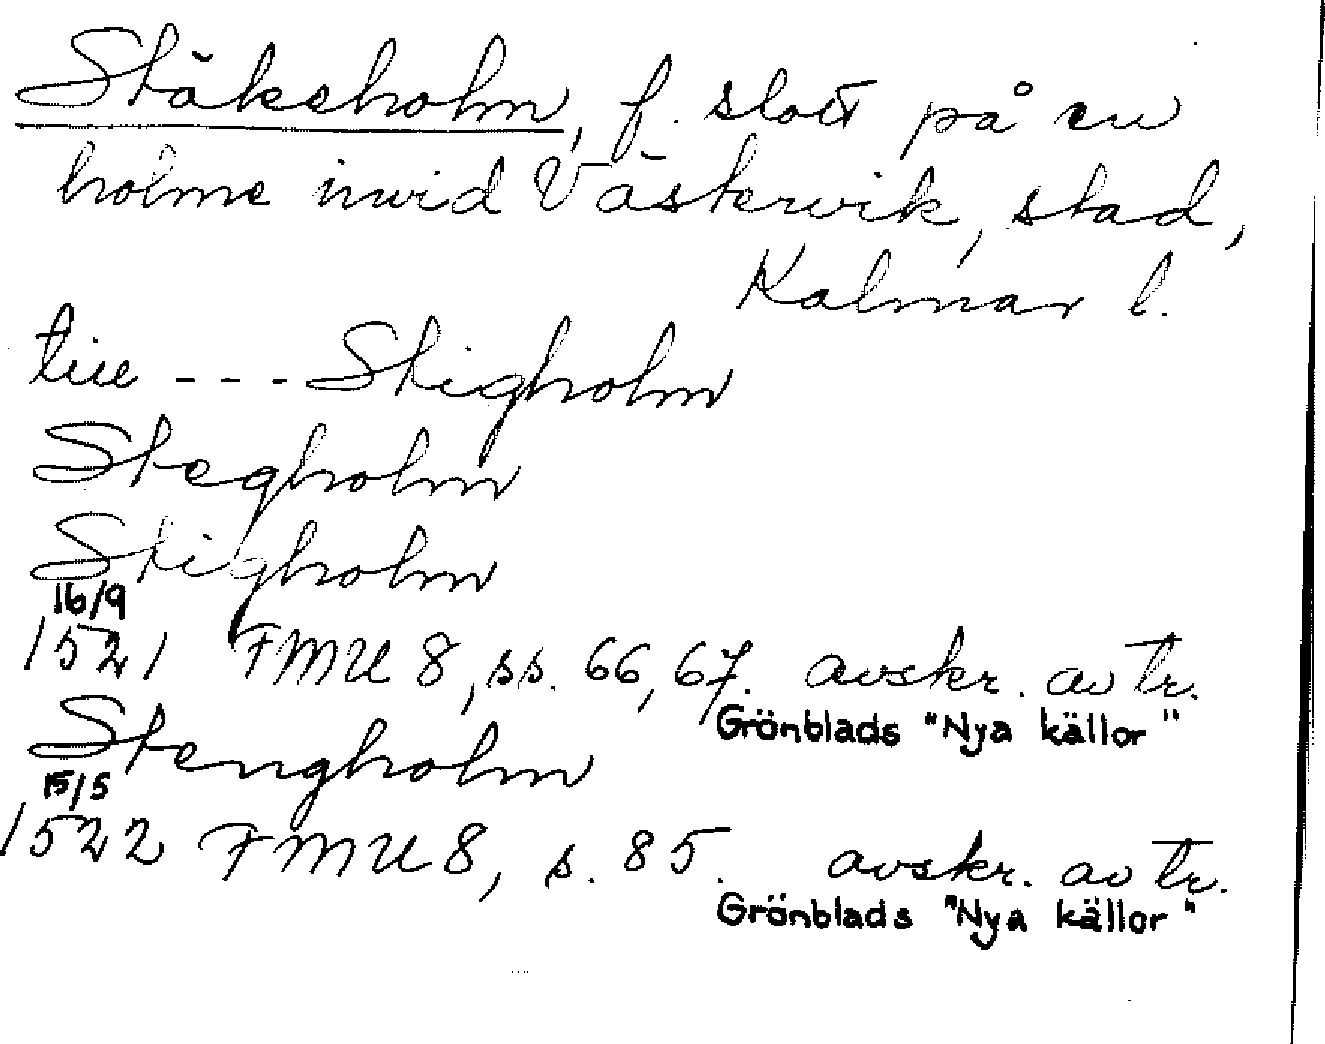 Stäkeholm, f. slott på en
holme invid Västervik, stad,
Kalmar l.
till --- Stigholm
Stegholm
Stigholm
16/9
1521 FMU 8, ss. 66, 67. avskr. av tr.
Grönblads "Nya källor"
Stengholm
15/5
1522 FMU 8, s. 85. avskr. av tr.
Grönblads "Nya källor"